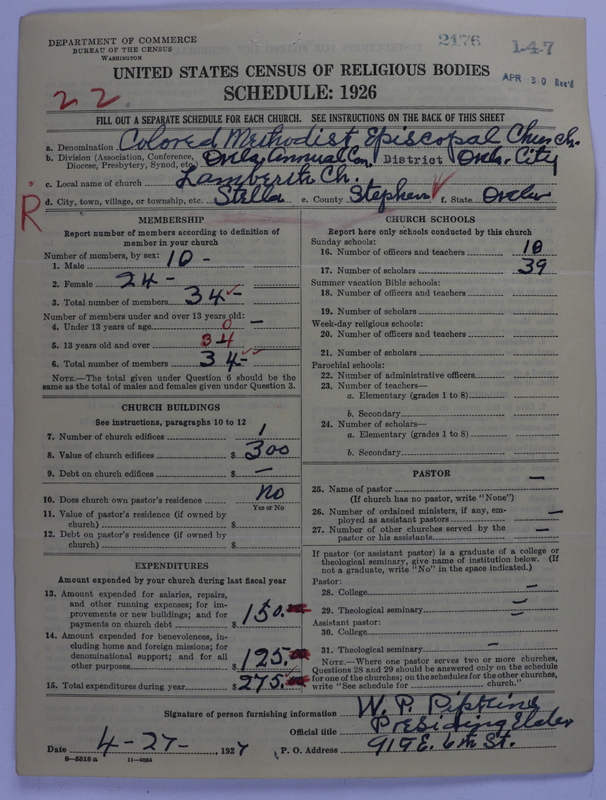 DEPARTMENT OF COMMERCE
BUREAU OF THE CENSUS
WASHINGTON
2176
1-4-7
APR 30 Rec'd
UNITED STATES CENSUS OF RELIGIOUS BODIES
SCHEDULE: 1926
22
FILL OUT A SEPARATE SCHEDULE FOR EACH CHURCH. SEE INSTRUCTIONS ON THE BACK OF THIS SHEET
a. Denomination Colored Methodist Episcopal Church.
b. Division (Association, Conference, Diocese, Presbytery, Synod, etc.) Okla. Annual Con District Okla. City
c. Local name of church Lamberth Ch.
d. City, town, village, or township, etc. Stella e. County Stephen f. State
R
MEMBERSHIP
Report number of members according to definition of
member in your church
Number of members, by sex:
1. Male 10 -
2. Female 24 -
3. Total number of members 34 -
Number of members under and over 13 years old:
4. Under 13 years of age 0 —
5. 13 years old and over 34
6. Total number of members 34 -
NOTE.—The total given under Question 6 should be the
same as the total of males and females given under Question 3.
CHURCH BUILDINGS
See instructions, paragraphs 10 to 12
7. Number of church edifices 1
8. Value of church edifices $ 300
9. Debt on church edifices $ —
10. Does church own pastor's residence No
Yes or No
11. Value of pastor's residence (if owned by
church) $
12. Debt on pastor's residence (if owned by
church) $
EXPENDITURES
Amount expended by your church during last fiscal year
13. Amount expended for salaries, repairs,
and other running expenses; for im-
provements or new buildings; and for
payments on church debt $ 150.
14. Amount expended for benevolences, in-
cluding home and foreign missions; for
denominational support; and for all
other purposes $ 125.
15. Total expenditures during year $ 275.
CHURCH SCHOOLS
Report here only schools conducted by this church
Sunday schools:
16. Number of officers and teachers 10
17. Number of scholars 39
Summer vacation Bible schools:
18. Number of officers and teachers
19. Number of scholars
Week-day religious schools:
20. Number of officers and teachers
21. Number of scholars
Parochial schools:
22. Number of administrative officers
23. Number of teachers—
a. Elementary (grades 1 to 8)
b. Secondary
24. Number of scholars—
a. Elementary (grades 1 to 8)
b. Secondary
PASTOR
25. Name of pastor —
(If church has no pastor, write "None")
26. Number of ordained ministers, if any, em-
ployed as assistant pastors —
27. Number of other churches served by the
pastor or his assistants —
If pastor (or assistant pastor) is a graduate of a college or
theological seminary, give name of institution below. (If
not a graduate, write "No" in the space indicated.)
Pastor:
28. College —
29. Theological seminary —
Assistant pastor:
30. College —
31. Theological seminary —
NOTE.—Where one pastor serves two or more churches,
Questions 28 and 29 should be answered only on the schedule
for one of the churches; on the schedules for the other churches,
write "See schedule for church."
Signature of person furnishing information W. P. Pipkins
Official title Presiding Elder
Date 4-27-, 1927 P. O. Address 919 E. 6th St.
8-5518 a 11-9034